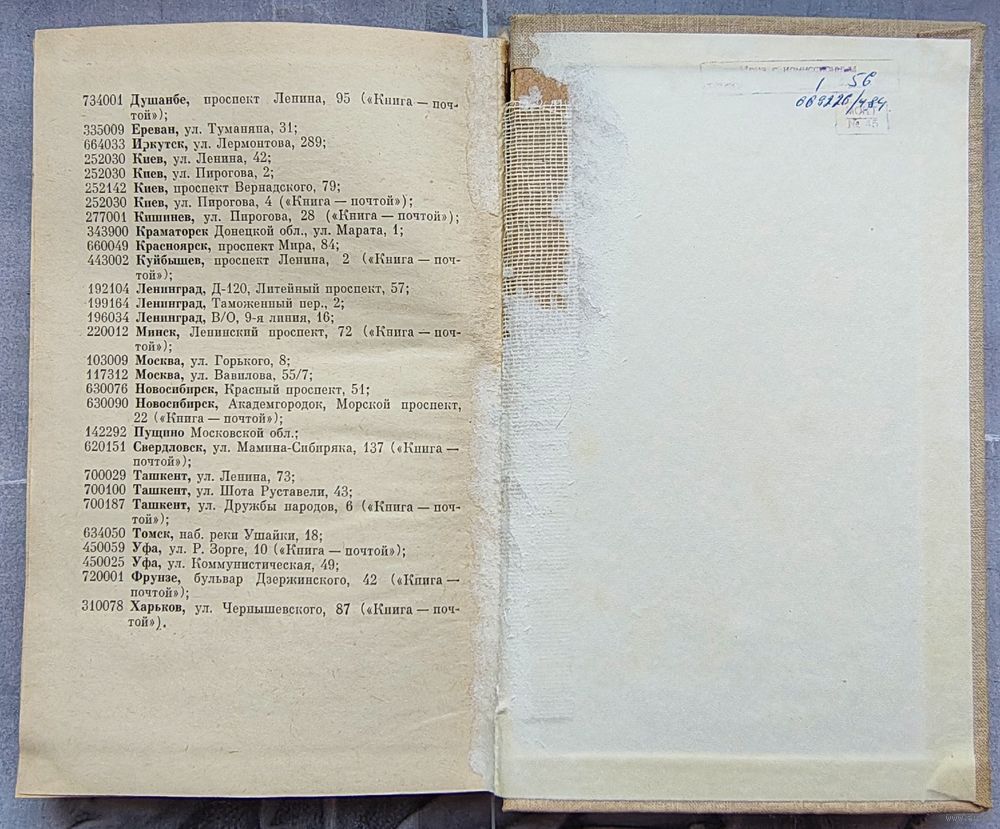 734001 Душанбе, проспект Ленина, 95 («Книга — поч-
той»);
335009 Ереван, ул. Туманяна, 31;
664033 Иркутск, ул. Лермонтова, 289;
252030 Киев, ул. Ленина, 42;
252030 Киев, ул. Пирогова, 2;
252142 Киев, проспект Вернадского, 79;
252030 Киев, ул. Пирогова, 4 («Книга — почтой»);
277001 Кишинев, ул. Пирогова, 28 («Книга — почтой»);
343900 Краматорск Донецкой обл., ул. Марата, 1;
660049 Красноярск, проспект Мира, 84;
443002 Куйбышев, проспект Ленина, 2 («Книга — поч-
той»);
192104 Ленинград, Д-120, Литейный проспект, 57;
199164 Ленинград, Таможенный пер., 2;
196034 Ленинград, В/О, 9-я линия, 16;
220012 Минск, Ленинский проспект, 72 («Книга — поч-
той»);
103009 Москва, ул. Горького, 8;
117312 Москва, ул. Вавилова, 55/7;
630076 Новосибирск, Красный проспект, 51;
630090 Новосибирск, Академгородок, Морской проспект,
22 («Книга — почтой»);
142292 Пущино Московской обл.;
620151 Свердловск, ул. Мамина-Сибиряка, 137 («Книга —
почтой»);
700029 Ташкент, ул. Ленина, 73;
700100 Ташкент, ул. Шота Руставели, 43;
700187 Ташкент, ул. Дружбы народов, 6 («Книга — поч-
той»);
634050 Томск, наб. реки Ушайки, 18;
450059 Уфа, ул. Р. Зорге, 10 («Книга — почтой»);
450025 Уфа, ул. Коммунистическая, 49;
720001 Фрунзе, бульвар Дзержинского, 42 («Книга —
почтой»);
310078 Харьков, ул. Чернышевского, 87 («Книга — поч-
той»).
1 56
№ 45